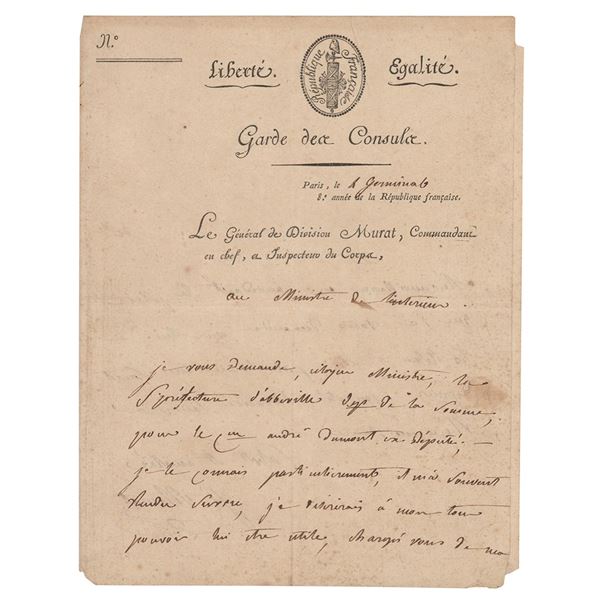 N.º
Liberté. République française Egalité.
Garde des Consuls.
Paris, le 4 Germinal
8.e année de la République française.
Le Général de Division Murat, Commandant
en chef, et Inspecteur du Corps,
au Ministre de l'intérieur.
je vous demande, citoyen Ministre, la
S/préfecture d'abbeville dept de la Somme,
pour le cen andré dumont ex député, —
je le connais particulièrement, il m'a souvent
rendu service, je désirerais à mon tour
pouvoir lui être utile, chargés vous de ma